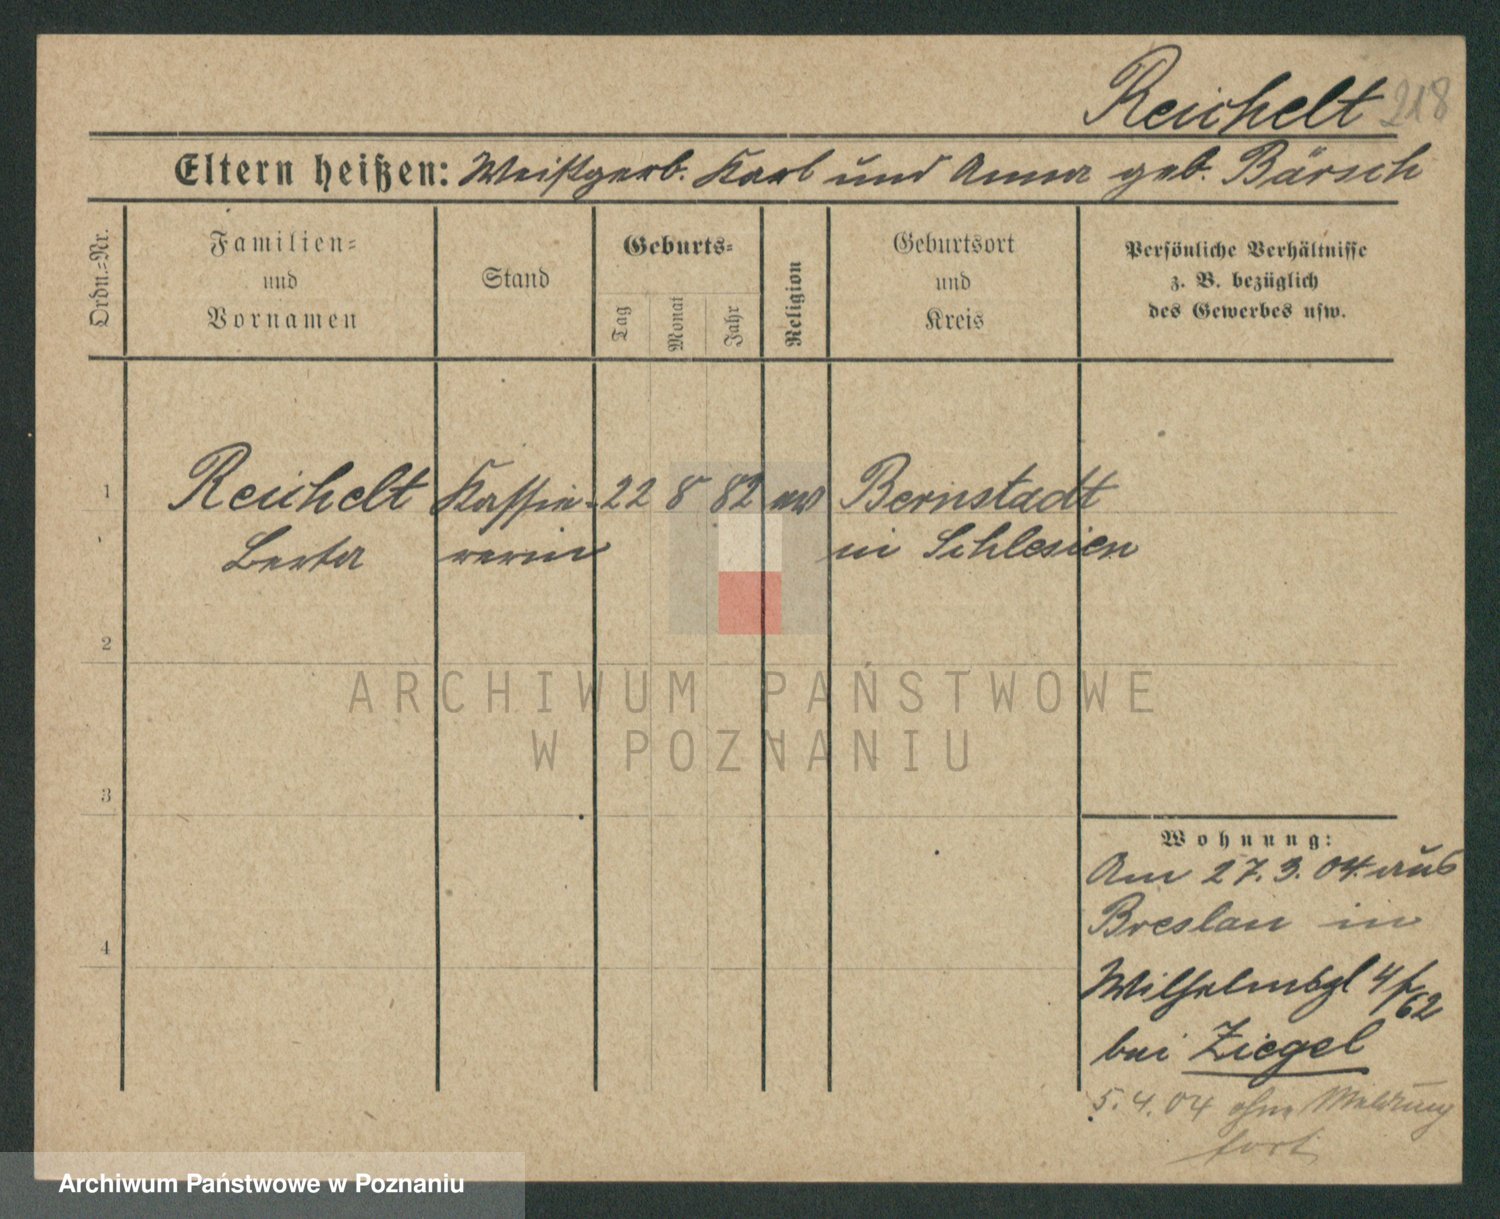 Reichelt 218
Eltern heißen: Weißgerb. Karl und Anna geb. Bärsch
Ordn.=Nr.
Familien=
und
Vornamen
Stand
Geburts=
Tag
Monat
Jahr
Religion
Geburtsort
und
Kreis
Persönliche Verhältnisse
z. B. bezüglich
des Gewerbes usw.
1 Reichelt Kassie- 22 8 82 ev Bernstadt
Berta rerin in Schlesien
2
3
4
Wohnung:
Am 27.3.04. aus
Breslau in
62
bei Ziegel
5.4.04 ohne Meldung
fort
ARCHIWUM PAŃSTWOWE
W POZNANIU
Archiwum Państwowe w Poznaniu